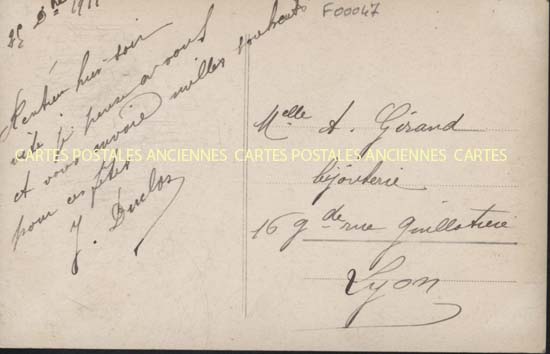 25 Xbre 191
F00047
Rentrée hier soir
vite je pense a vous
et vous envoie milles souhaits
pour ces fêtes
J. Duclos
CARTES POSTALES ANCIENNES CARTES POSTALES ANCIENNES CARTES
Melle A. Gérand
bijouterie
16 gde rue Guillotiere
Lyon